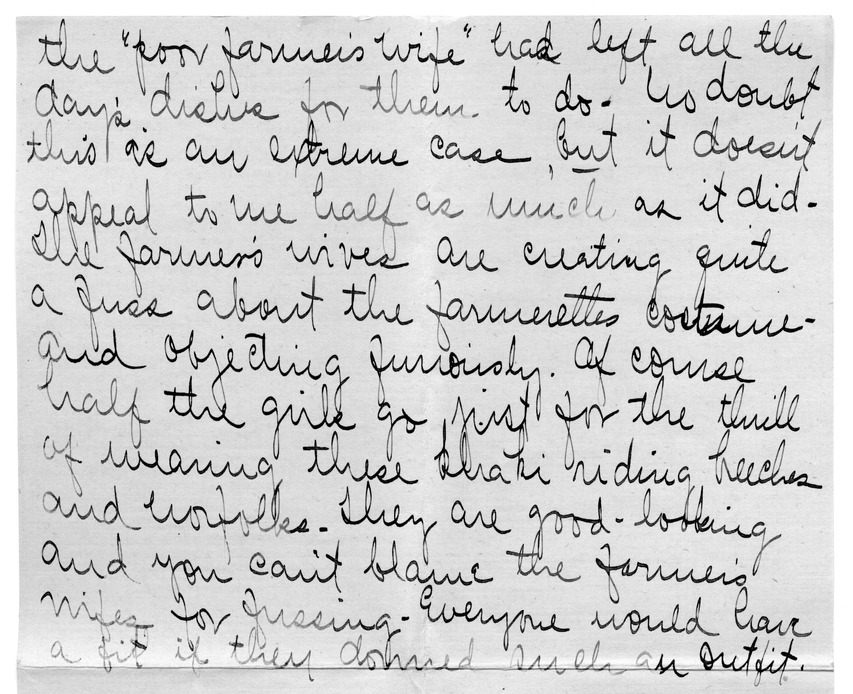 the "poor farmer's wife" had left all the
day's dishes for them to do - No doubt
this is an extreme case, but it doesn't
appeal to me half as much as it did -
The farmer's wives are creating quite
a fuss about the farmerettes costume -
and objecting furiously. Of course
half the girls go just for the thrill
of wearing these khaki riding breeches
and norfolks - They are good-looking
and you can't blame the farmer's
wifes for fussing - Everyone would have
a fit if they donned such an outfit.